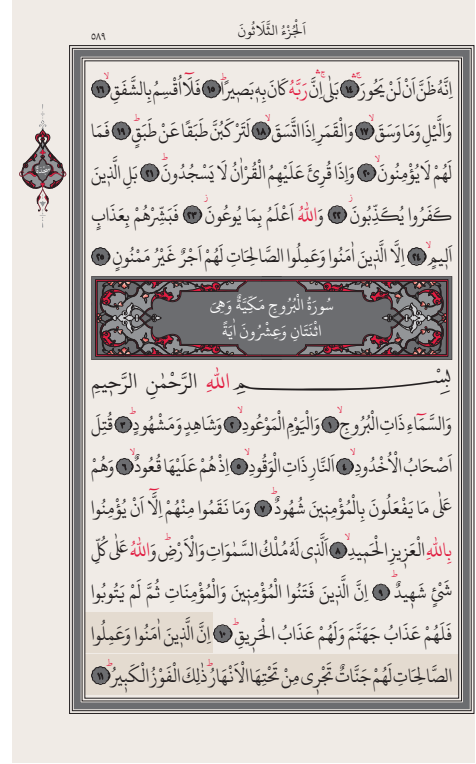 ٥٨٩
اَلْجُزْءُ الثَّلَاثُونَ
اِنَّهُ ظَنَّ اَنْ لَنْ يَحُورَۚۛ ﴿١٤﴾ بَلٰىۚۛ اِنَّ رَبَّهُ كَانَ بِهٖ بَصٖيرًاؕ ﴿١٥﴾ فَلَٓا اُقْسِمُ بِالشَّفَقِۙ ﴿١٦﴾
وَالَّيْلِ وَمَا وَسَقَۙ ﴿١٧﴾ وَالْقَمَرِ اِذَا اتَّسَقَۙ ﴿١٨﴾ لَتَرْكَبُنَّ طَبَقًا عَنْ طَبَقٍؕ ﴿١٩﴾ فَمَا
لَهُمْ لَا يُؤْمِنُونَۙ ﴿٢٠﴾ وَاِذَا قُرِئَ عَلَيْهِمُ الْقُرْاٰنُ لَا يَسْجُدُونَؕ ﴿٢١﴾ بَلِ الَّذٖينَ
كَفَرُوا يُكَذِّبُونَؗ ﴿٢٢﴾ وَاللّٰهُ اَعْلَمُ بِمَا يُوعُونَؗ ﴿٢٣﴾ فَبَشِّرْهُمْ بِعَذَابٍ
اَلٖيمٍۙ ﴿٢٤﴾ اِلَّا الَّذٖينَ اٰمَنُوا وَعَمِلُوا الصَّالِحَاتِ لَهُمْ اَجْرٌ غَيْرُ مَمْنُونٍ ﴿٢٥﴾
سُورَةُ الْبُرُوجِ مَكِّيَّةٌ وَهِىَ
اثْنَتَانِ وَعِشْرُونَ اٰيَةً
بِسْمِ اللّٰهِ الرَّحْمٰنِ الرَّحٖيمِ
وَالسَّمَٓاءِ ذَاتِ الْبُرُوجِۙ ﴿١﴾ وَالْيَوْمِ الْمَوْعُودِۙ ﴿٢﴾ وَشَاهِدٍ وَمَشْهُودٍؕ ﴿٣﴾ قُتِلَ
اَصْحَابُ الْاُخْدُودِۙ ﴿٤﴾ اَلنَّارِ ذَاتِ الْوَقُودِۙ ﴿٥﴾ اِذْ هُمْ عَلَيْهَا قُعُودٌۙ ﴿٦﴾ وَهُمْ
عَلٰى مَا يَفْعَلُونَ بِالْمُؤْمِنٖينَ شُهُودٌؕ ﴿٧﴾ وَمَا نَقَمُوا مِنْهُمْ اِلَّٓا اَنْ يُؤْمِنُوا
بِاللّٰهِ الْعَزٖيزِ الْحَمٖيدِۙ ﴿٨﴾ اَلَّذٖى لَهُ مُلْكُ السَّمٰوَاتِ وَالْاَرْضِؕ وَاللّٰهُ عَلٰى كُلِّ
شَیْءٍ شَهٖيدٌؕ ﴿٩﴾ اِنَّ الَّذٖينَ فَتَنُوا الْمُؤْمِنٖينَ وَالْمُؤْمِنَاتِ ثُمَّ لَمْ يَتُوبُوا
فَلَهُمْ عَذَابُ جَهَنَّمَ وَلَهُمْ عَذَابُ الْحَرٖيقِؕ ﴿١٠﴾ اِنَّ الَّذٖينَ اٰمَنُوا وَعَمِلُوا
الصَّالِحَاتِ لَهُمْ جَنَّاتٌ تَجْرٖى مِنْ تَحْتِهَا الْاَنْهَارُؕ ذٰلِكَ الْفَوْزُ الْكَبٖيرُؕ ﴿١١﴾